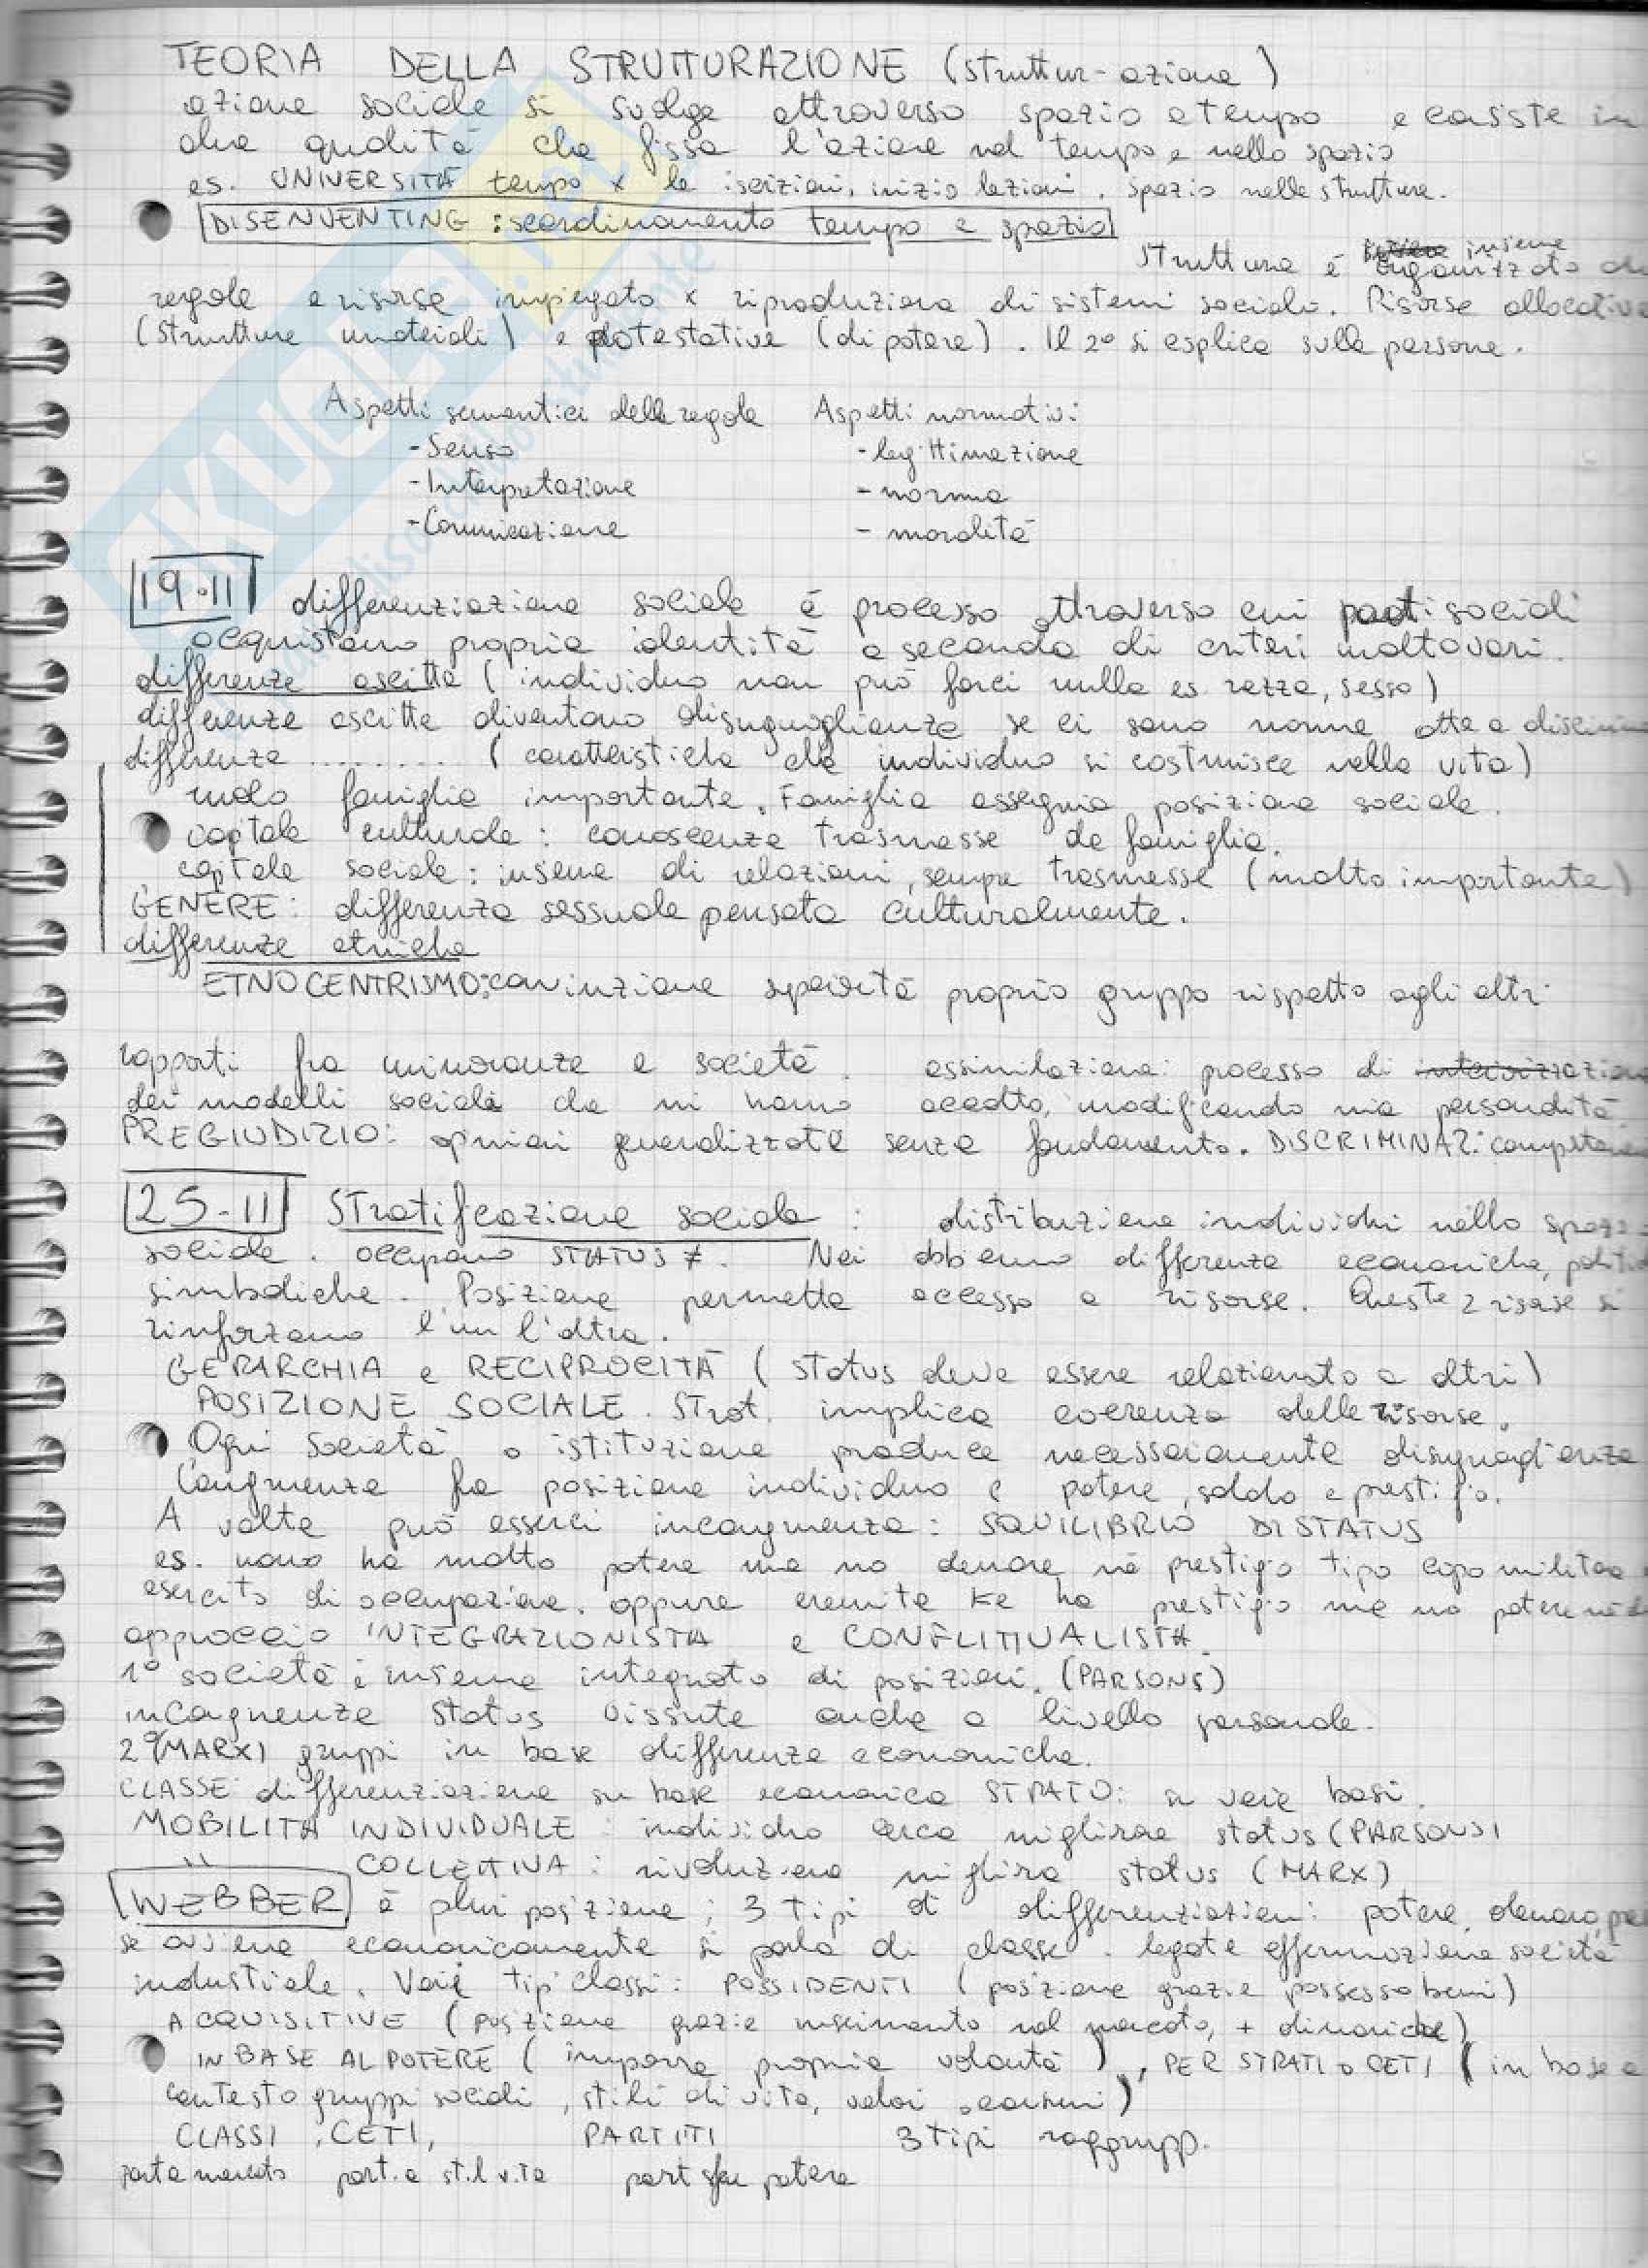 TEORIA DELLA STRUTTURAZIONE (struttur-azione)
azione sociale si svolge attraverso spazio e tempo e consiste in
due qualità che fissa l'azione nel tempo e nello spazio
es. UNIVERSITÀ tempo x le iscrizioni, inizio lezioni. spazio nelle strutture.
DISENVENTING: scardinamento tempo e spazio
Struttura è insieme organizzato di
regole e risorse impiegato x riproduzione di sistemi sociale. Risorse allocative
(strutture materiali) e potestative (di potere). Il 2° si esplica sulle persone.
Aspetti semantici delle regole Aspetti normativi
-Senso -legittimazione
-Interpretazione -norma
-Comunicazione -moralità
19.11 differenziazione sociale è processo attraverso cui parti sociali
acquistano propria identità a seconda di criteri molto vari.
differenze ascritte (individuo non può farci nulla es. razza, sesso)
differenze ascritte diventano disuguaglianze se ci sono norme atte a
differenze ......... (caratteristiche che individuo si costruisce nella vita)
ruolo famiglia importante. Famiglia assegna posizione sociale.
capitale culturale: conoscenze trasmesse da famiglia.
capitale sociale: insieme di relazioni, sempre trasmesse (molto importante)
GENERE: differenza sessuale pensata culturalmente.
differenze etniche
ETNOCENTRISMO: convinzione superiorità proprio gruppo rispetto agli altri
rapporti fra minoranze e società. assimilazione: processo di
dei modelli sociali che mi hanno accolto, modificando mia personalità
PREGIUDIZIO: opinioni generalizzate senza fondamento. DISCRIMINAZ:
25-11 Stratificazione sociale: distribuzione individui nello
sociale. occupano STATUS ≠. Noi abbiamo differenze economiche,
simboliche. Posizione permette accesso a risorse. Queste 2 risorse si
rinforzano l'un l'altra.
GERARCHIA e RECIPROCITÀ (status deve essere relazionato a altri)
POSIZIONE SOCIALE. Strat. implica coerenza delle risorse.
Ogni società o istituzione produce necessariamente disuguaglianza
Congruenza fra posizione individuo e potere, soldo e prestigio.
A volte può esserci incongruenza: SQUILIBRIO DI STATUS
es. uomo ha molto potere ma no denaro né prestigio tipo capo militare
esercito di occupazione. oppure eremita ke ha prestigio ma no potere né
approccio INTEGRAZIONISTA e CONFLITTUALISTA.
1° società è insieme integrato di posizioni. (PARSONS)
incongruenze status vissute anche a livello personale.
2° (MARX) gruppi in base differenze economiche.
CLASSE: differenziazione su base economica STRATO: su varie basi.
MOBILITÀ INDIVIDUALE: individuo cerca migliorare status (PARSONS)
" COLLETTIVA: rivoluzione migliora status (MARX)
WEBBER è pluri posizione; 3 tipi di differenziazioni: potere, denaro,
se avviene economicamente si parla di classe. legate affermazione società
industriale. Varie tipi classi: POSSIDENTI (posizione grazie possesso beni)
ACQUISITIVE (posizione grazie inserimento nel mercato, + dinamiche)
IN BASE AL POTERE (imporre propria volontà), PER STRATI o CETI (in base a
contesto gruppi sociali, stili di vita, valori, consumi)
CLASSI, CETI, PARTITI 3 tipi raggrupp.
mercato stil vita potere